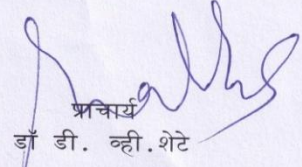 प्राचार्य
डॉ डी. व्ही.शेटे